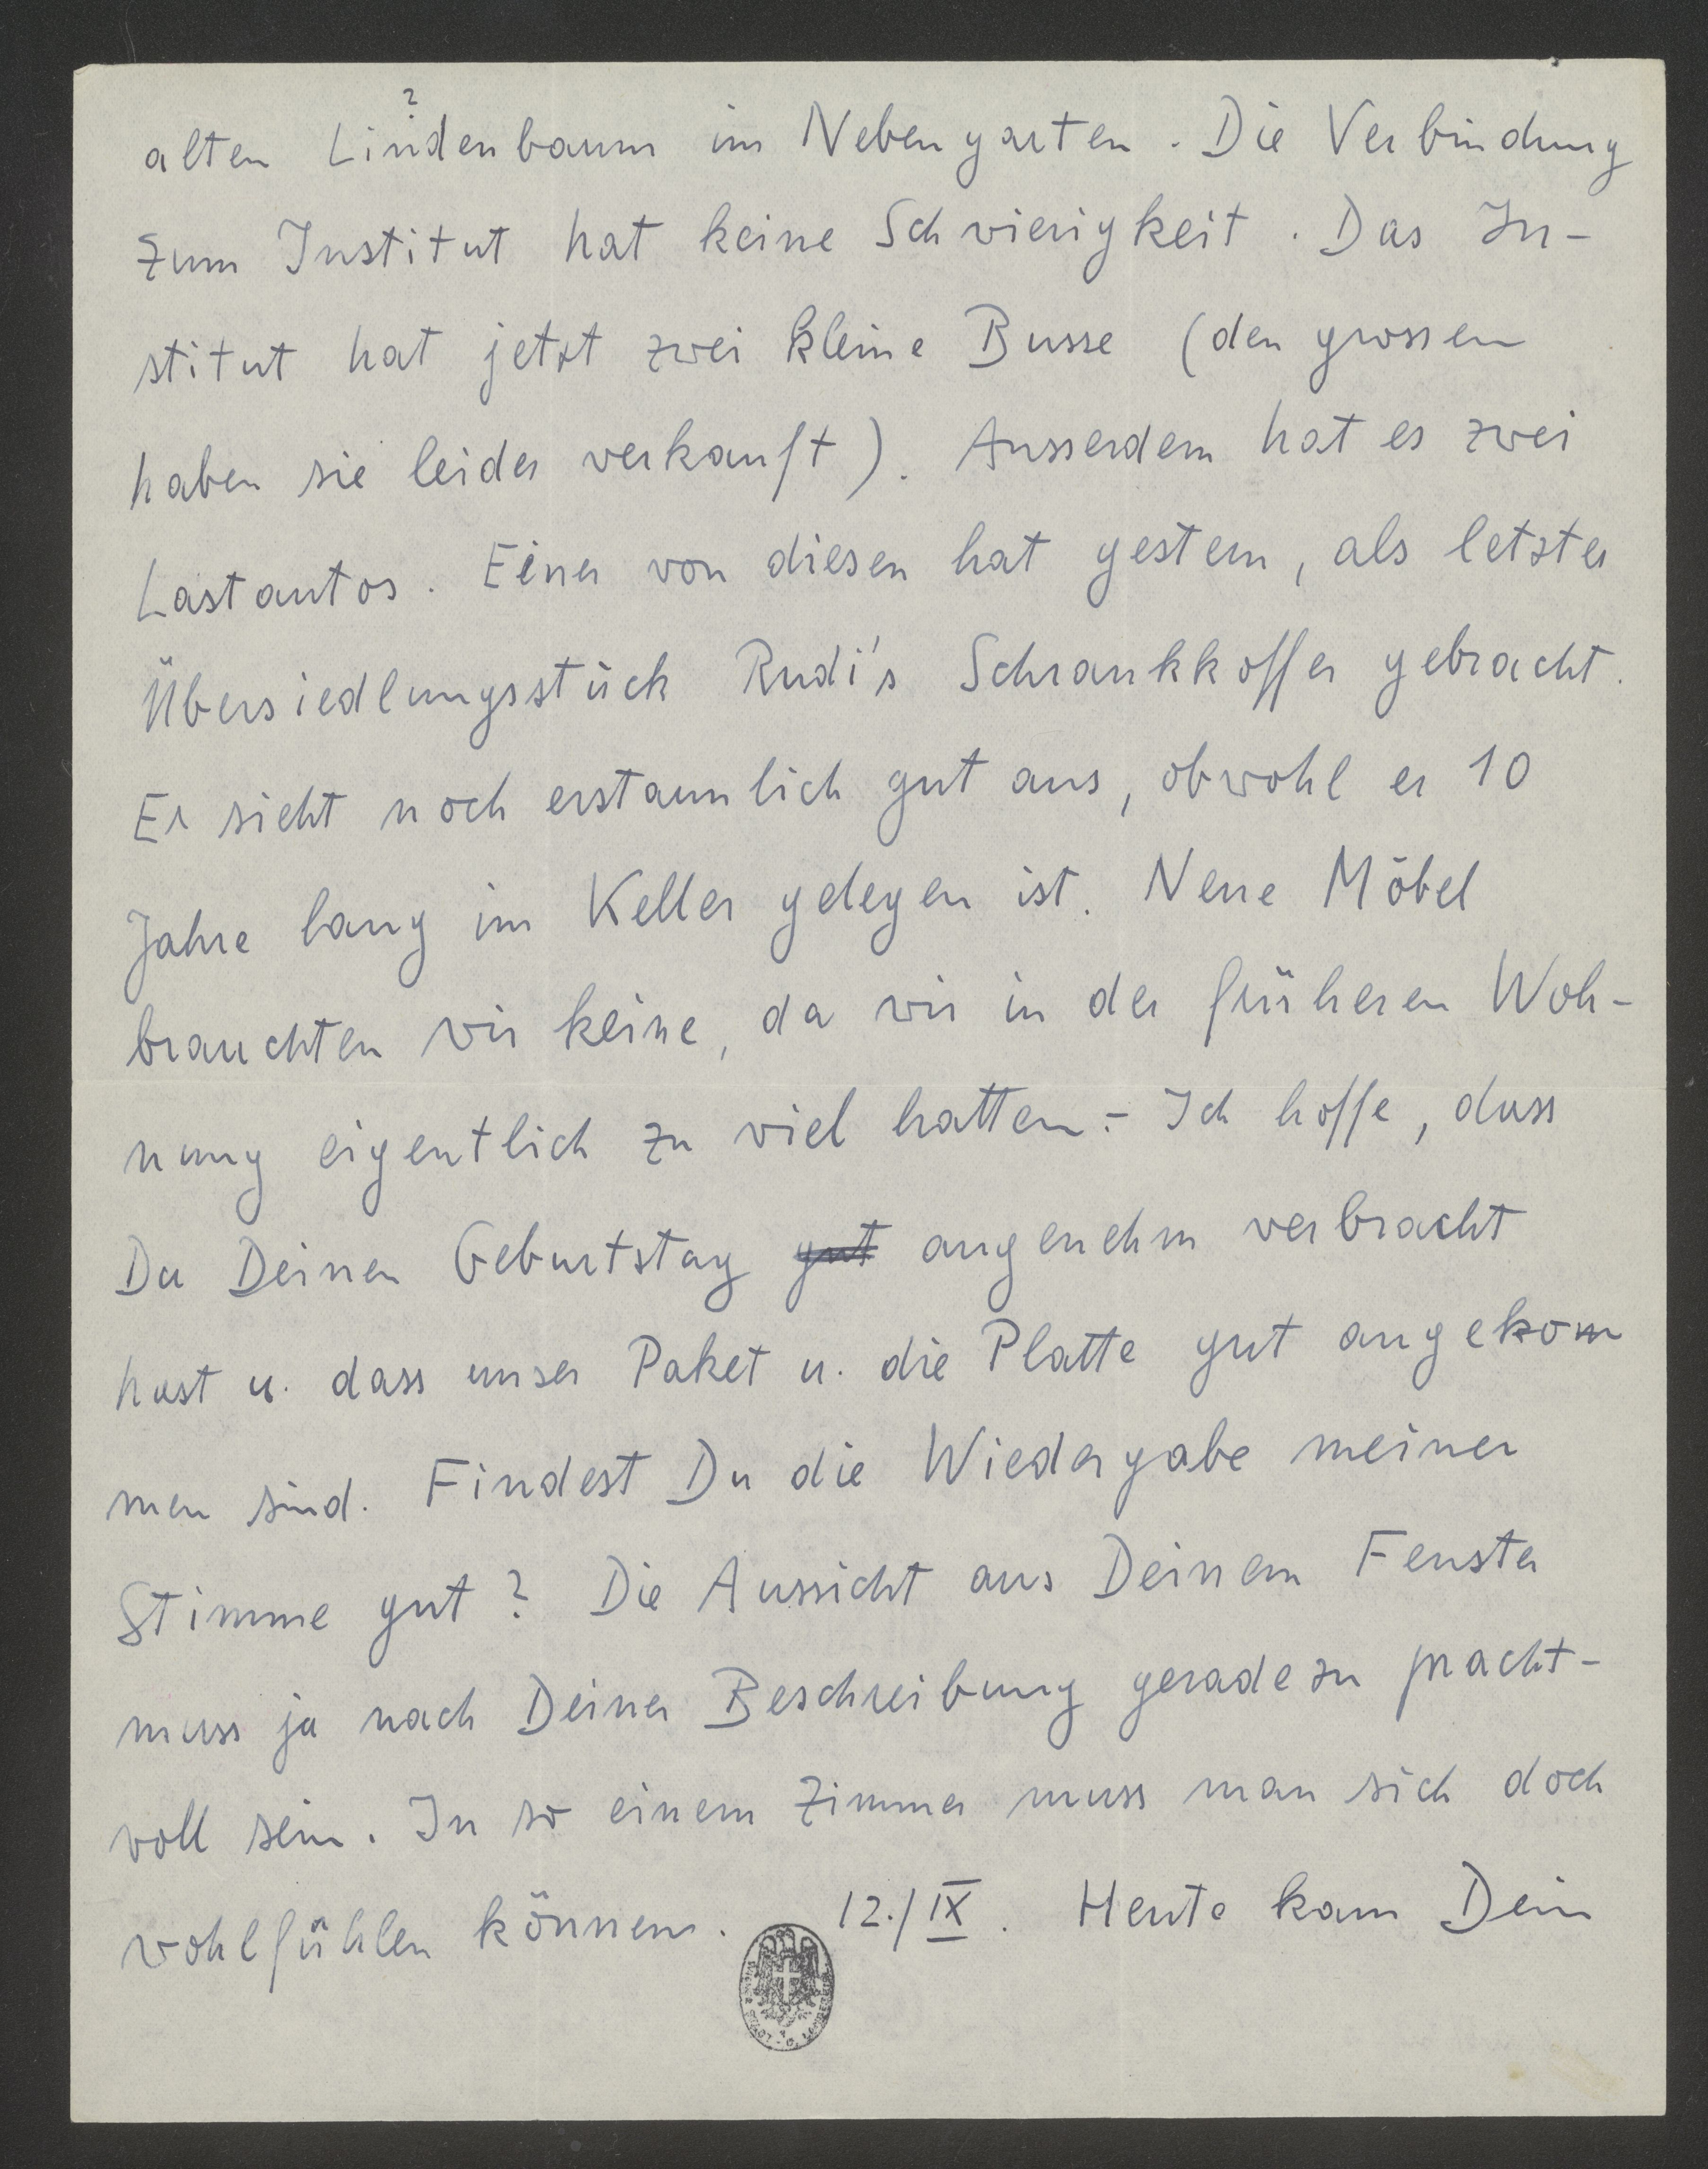 ?
alten Lindenbaum im Nebengarten. Die Verbindung
zum Institut hat keine Schwierigkeit. Das In-
stitut hat jetzt zwei kleine Busse (den grossen
haben sie leider verkauft). Ausserdem hat es zwei
Lastautos. Einer von diesen hat gestern, als letztes
Übersiedlungsstück Rudi's Schrankkoffer gebracht.
Er sieht noch erstaunlich gut aus, obwohl er 10
Jahre lang im Keller gelegen ist. Neue Möbel
brauchten wir keine, da wir in der früheren Woh-
nung eigentlich zu viel hatten.- Ich hoffe, dass
Du Deinen Geburtstag gut angenehm verbracht
hast u. dass unser Paket u. die Platte gut angekom
men sind. Findest Du die Wiedergabe meiner
Stimme gut? Die Aussicht aus Deinem Fenster
muss ja nach Deiner Beschreibung geradezu pracht-
voll sein. In so einem Zimmer muss man sich doch
wohlfühlen können. 12./IX. Heute kam Dein